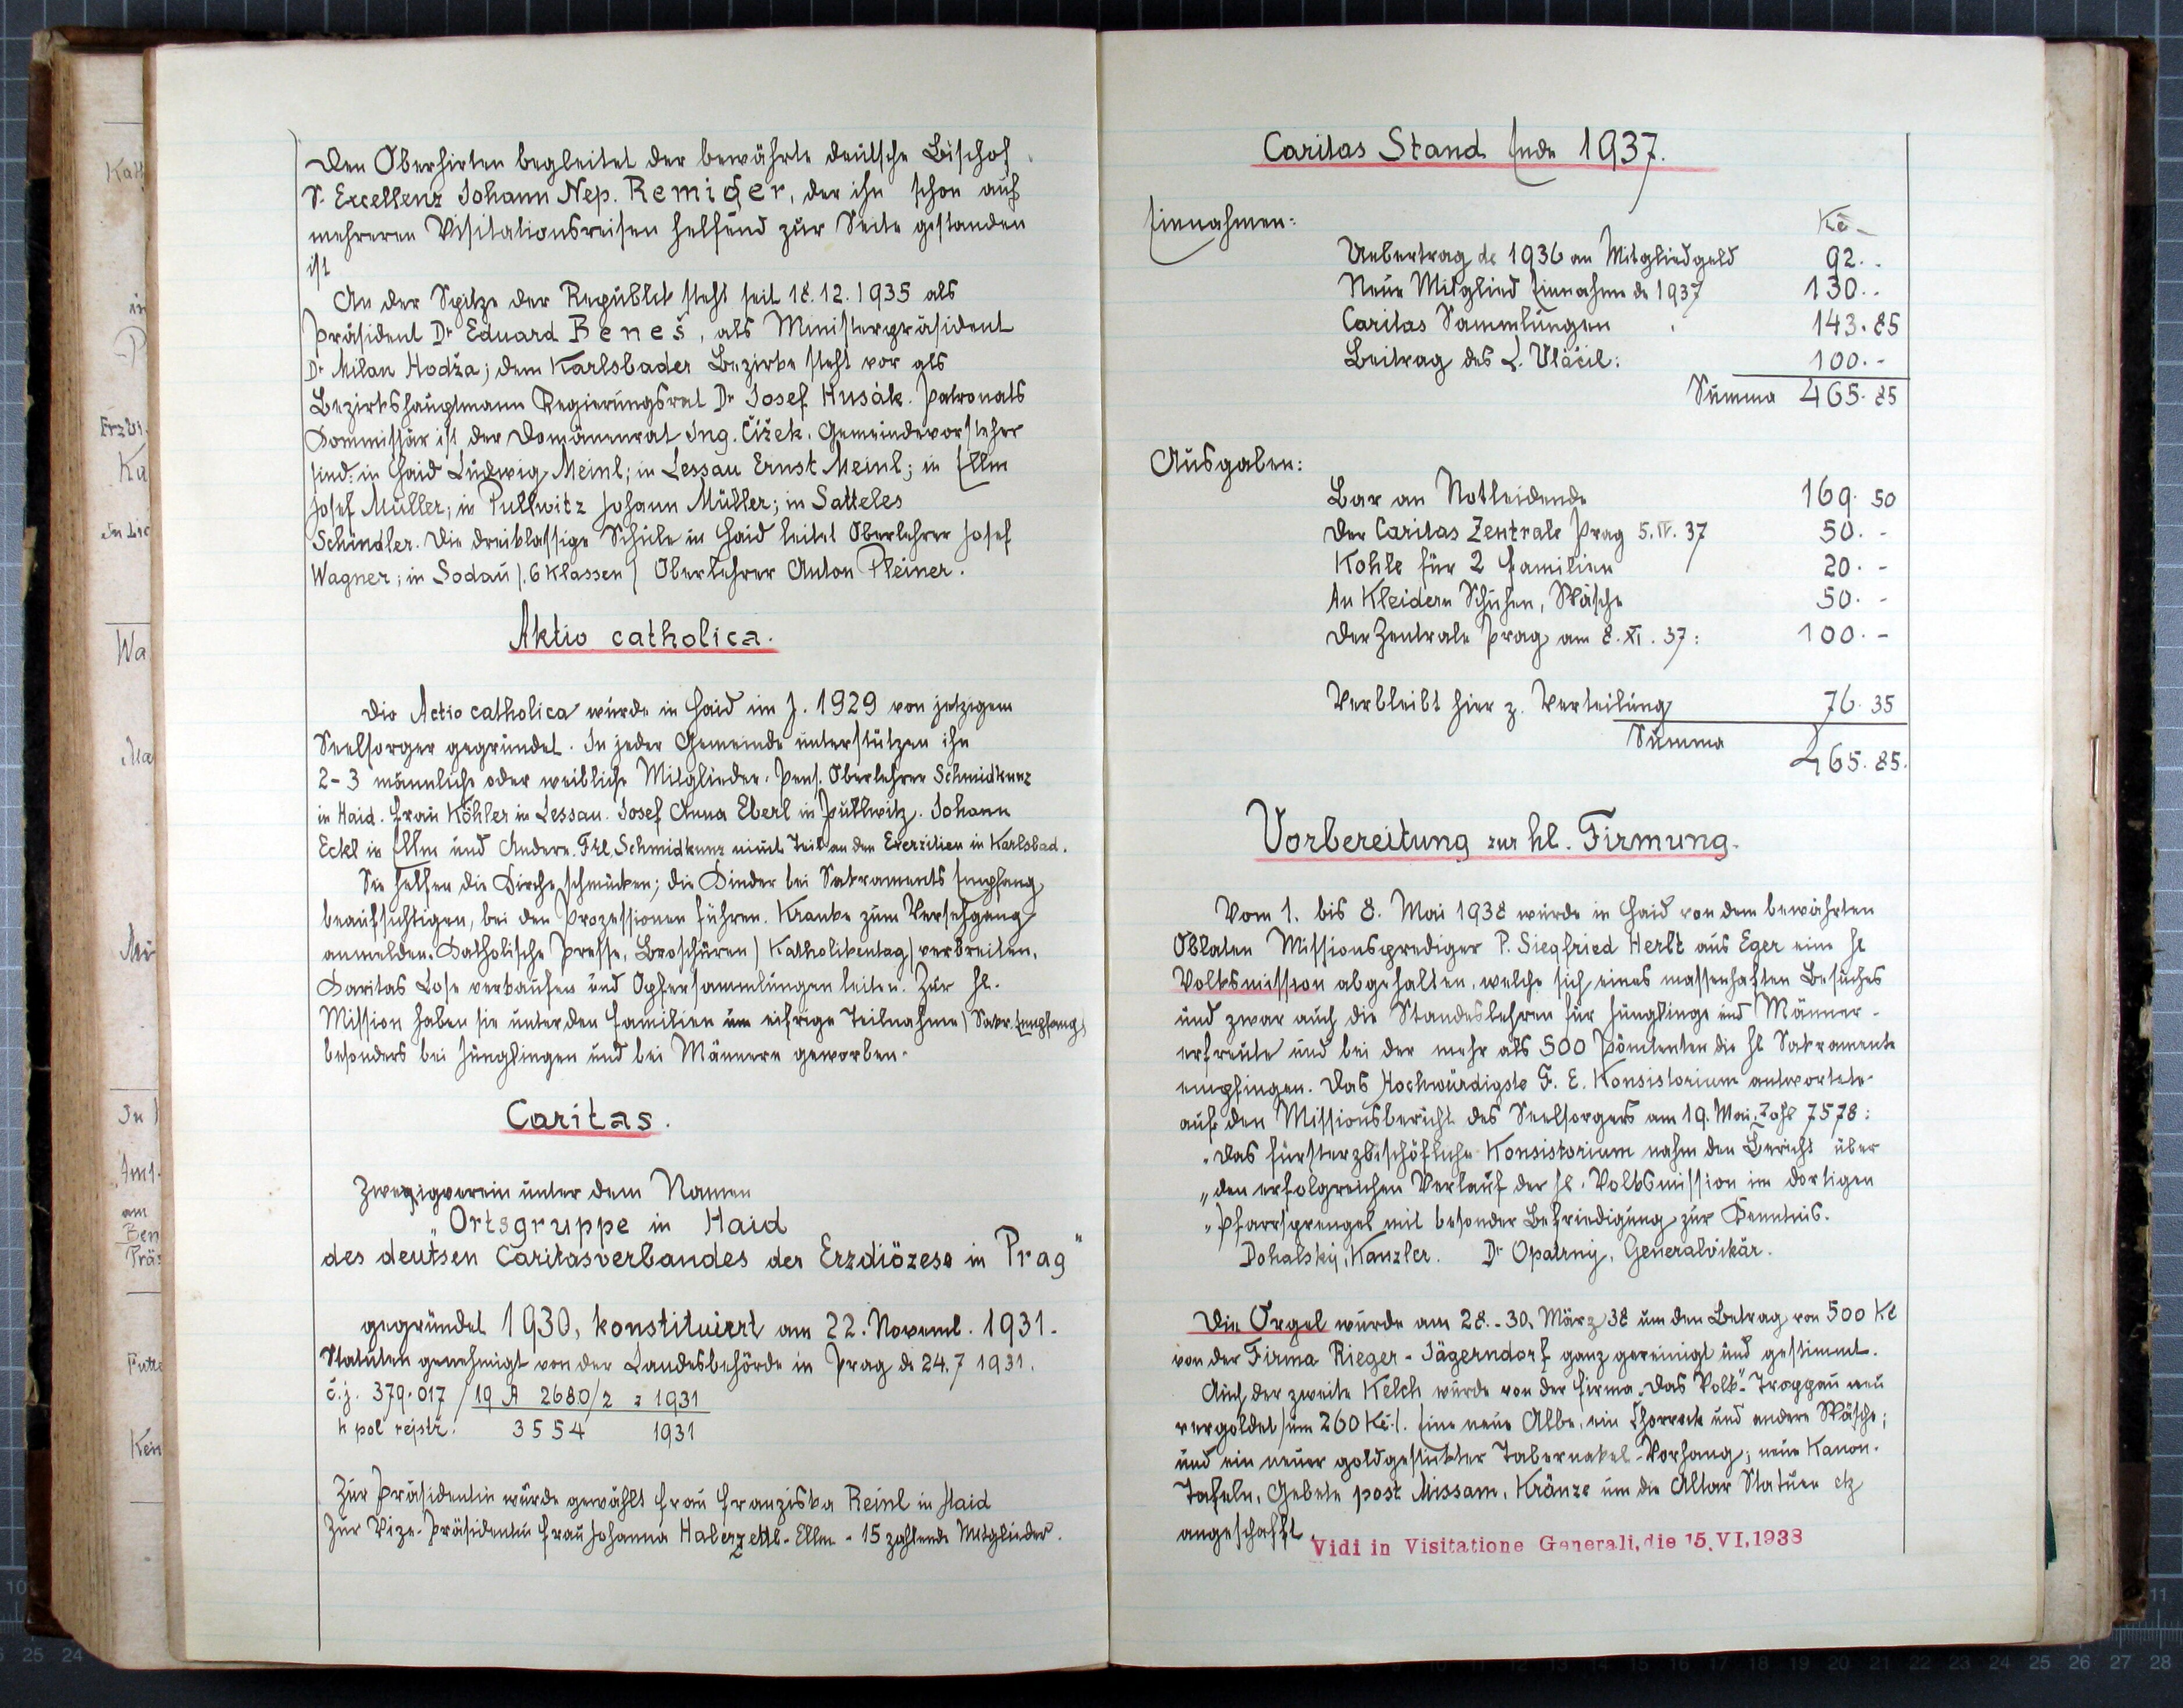 Den Oberhirten begleitet der bewährte deutsche Bischof
S. Excellenz Johann Nep. Remiger, der ihn schon auf
mehreren Visitationsreisen helfend zur Seite gestanden
ist
An der Spitze der Republik steht seit 18.12.1935 als
Präsident Dr Eduard Beneš, als Ministerpräsident
Dr Milan Hodža; dem Karlsbader Bezirke steht vor als
Bezirkshauptmann Regierungsrat Dr Josef Husák. Patronats
Kommissär ist der Domänenrat Ing. Čížek. Gemeindevorsteher
sind: in Haid Ludwig Meinl; in Lessau Ernst Meinl; in Ellm
Josef Müller; in Pullwitz Johann Müller; in Satteles
Schindler. Die dreiklassige Schule in Haid leitet Oberlehrer Josef
Wagner; in Sodau /.6 Klassen/ Oberlehrer Anton Pleiner.
Aktio catholica.
Die Actio catholica wurde in Haid im J. 1929 von jetzigem
Seelsorger gegründet. In jeder Gemeinde unterstützen ihn
2-3 männliche oder weibliche Mitglieder. Pens. Oberlehrer Schmidkunz
in Haid. Frau Köhler in Lessau. Josef Anna Eberl in Pullwitz. Johann
Eckl in Ellm und Andere. Frl. Schmidkunz nimt Teil an den Exerzitien in Karlsbad.
Sie helfen die Kirche schmücken; die Kinder bei Sakraments Empfang
beaufsichtigen, bei den Prozessionen führen. Kranke zum Versehgang
anmelden. Katholische Presse, Broschüren / Katholikentag / verbreiten.
Karitas Lose verkaufen und Opfersammlungen leiten. Zur hl.
Mission haben sie unter den Familien um eifrige Teilnahme / Sakr. Empfang /
besonders bei Jünglingen und bei Männern geworben.
Caritas.
Zweigverein unter dem Namen
„Ortsgruppe in Haid
des deutsen Caritasverbandes der Erzdiözese in Prag"
gegründet 1930, konstituiert am 22. Novemb. 1931.
Statuten genehmigt von der Landesbehörde in Prag de 24.7 1931.
č.j. 379.017 / 19 A 2680/2 z 1931
k pol rejstř. 3554 1931
Zur Präsidentin wurde gewählt Frau Franziska Reinl in Haid
Zur Vize-Präsidentin Frau Johanna Haberzettl-Ellm - 15 zahlende Mitglieder.
Caritas Stand Ende 1937.
Einnahmen: Kč
Uebertrag de 1936 an Mitgliedgeld 92..
Neue Mitglied Einnahme de 1937 130..
Caritas Sammlungen 143.85
Beitrag des L. Vláčil: 100.-
Summa 465.85
Ausgaben:
Bar an Notleidende 169.50
Der Caritas Zentrale Prag 5.IV.37 50.-
Kohle für 2 Familien 20.-
An Kleidern Schuhen, Wäsche 50.-
Der Zentrale Prag am 8.XI.37: 100.-
Verbleibt hier z. Verteilung 76.35
Summa 465.85.
Vorbereitung zur hl. Firmung.
Vom 1. bis 8. Mai 1938 wurde in Haid von dem bewährten
Oblaten Missionsprediger P. Siegfried Herlt aus Eger eine hl
Volksmission abgehalten, welche sich eines massenhaften Besuches
und zwar auch die Standeslehren für Jünglinge und Männer-
erfreute und bei der mehr als 500 Pönitenten die hl Sakramente
empfingen. Das Hochwürdigste F. E. Konsistorium antwortete
auf den Missionsbericht des Seelsorgers am 19. Mai, Zahl 7578:
„Das fürsterzbischöfliche Konsistorium nahm den Bericht über
„den erfolgreichen Verlauf der hl. Volksmission im dortigen
„Pfarrsprengel mit besonder Befriedigung zur Kenntnis.
Dohalský, Kanzler. Dr Opatrný, Generalvikär.
Die Orgel wurde am 28.-30. März 38 um den Betrag von 500 Kč
von der Firma Rieger-Jägerndorf ganz gereinigt und gestimmt.
Auch der zweite Kelch wurde von der Firma „Das Volk" Troppau neu
vergoldet /um 260 Kč./. Eine neue Albe, ein Chorrock und andere Wäsche;
und ein neuer goldgestickter Tabernakel-Vorhang; neue Kanon-
Tafeln, Gebete post Missam, Kränze um die Altar Statuen etz
angeschafft.
Vidi in Visitatione Generali, die 15. VI. 1938